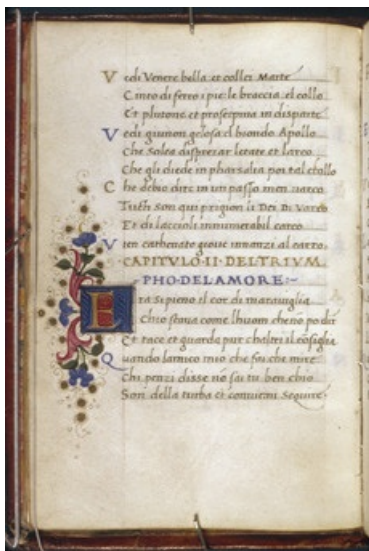 Vedi Venere bella et collei Marte
Cinto di ferro i pie le braccia el collo
Et plutone et proserpina in disparte
Vedi giunon gelosa el biondo Apollo
Che solea disprezar letate et larco
Che gli diede in pharsalia poi tal crollo
Che debio dire in un passo men varco
Tutti son qui prigion li Dei Di Varro
Et di laccioli innumerabil carco
Vien carhenato giove innanzi al carro
CAPITVLO·II·DEL TRIVM
PHO·DELAMORE:~
Era si pieno il cor di maraviglia
Chio stava come lhuom che nō po dir
Et tace et guarda pur chaltri il cōsiglia
Quando lamico mio che fai che mire
Chi penzi disse nō sai tu ben chio
Son della turba et conviemi sequire